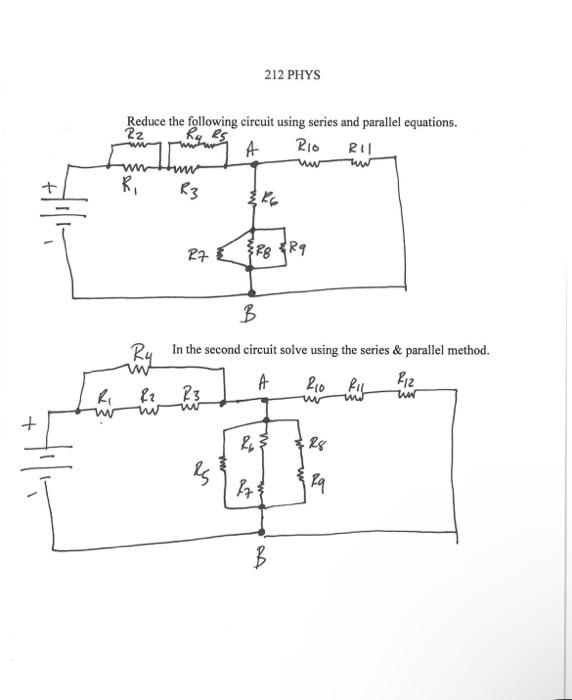 212 PHYS
Reduce the following circuit using series and parallel equations.
R2 R4 R5
A R10 R11
+ R1 R3 R6
-
R7 R8 R9
B
In the second circuit solve using the series & parallel method.
R4
A R10 R11 R12
R1 R2 R3
+
R6 R8
-
R5 R7 R9
B